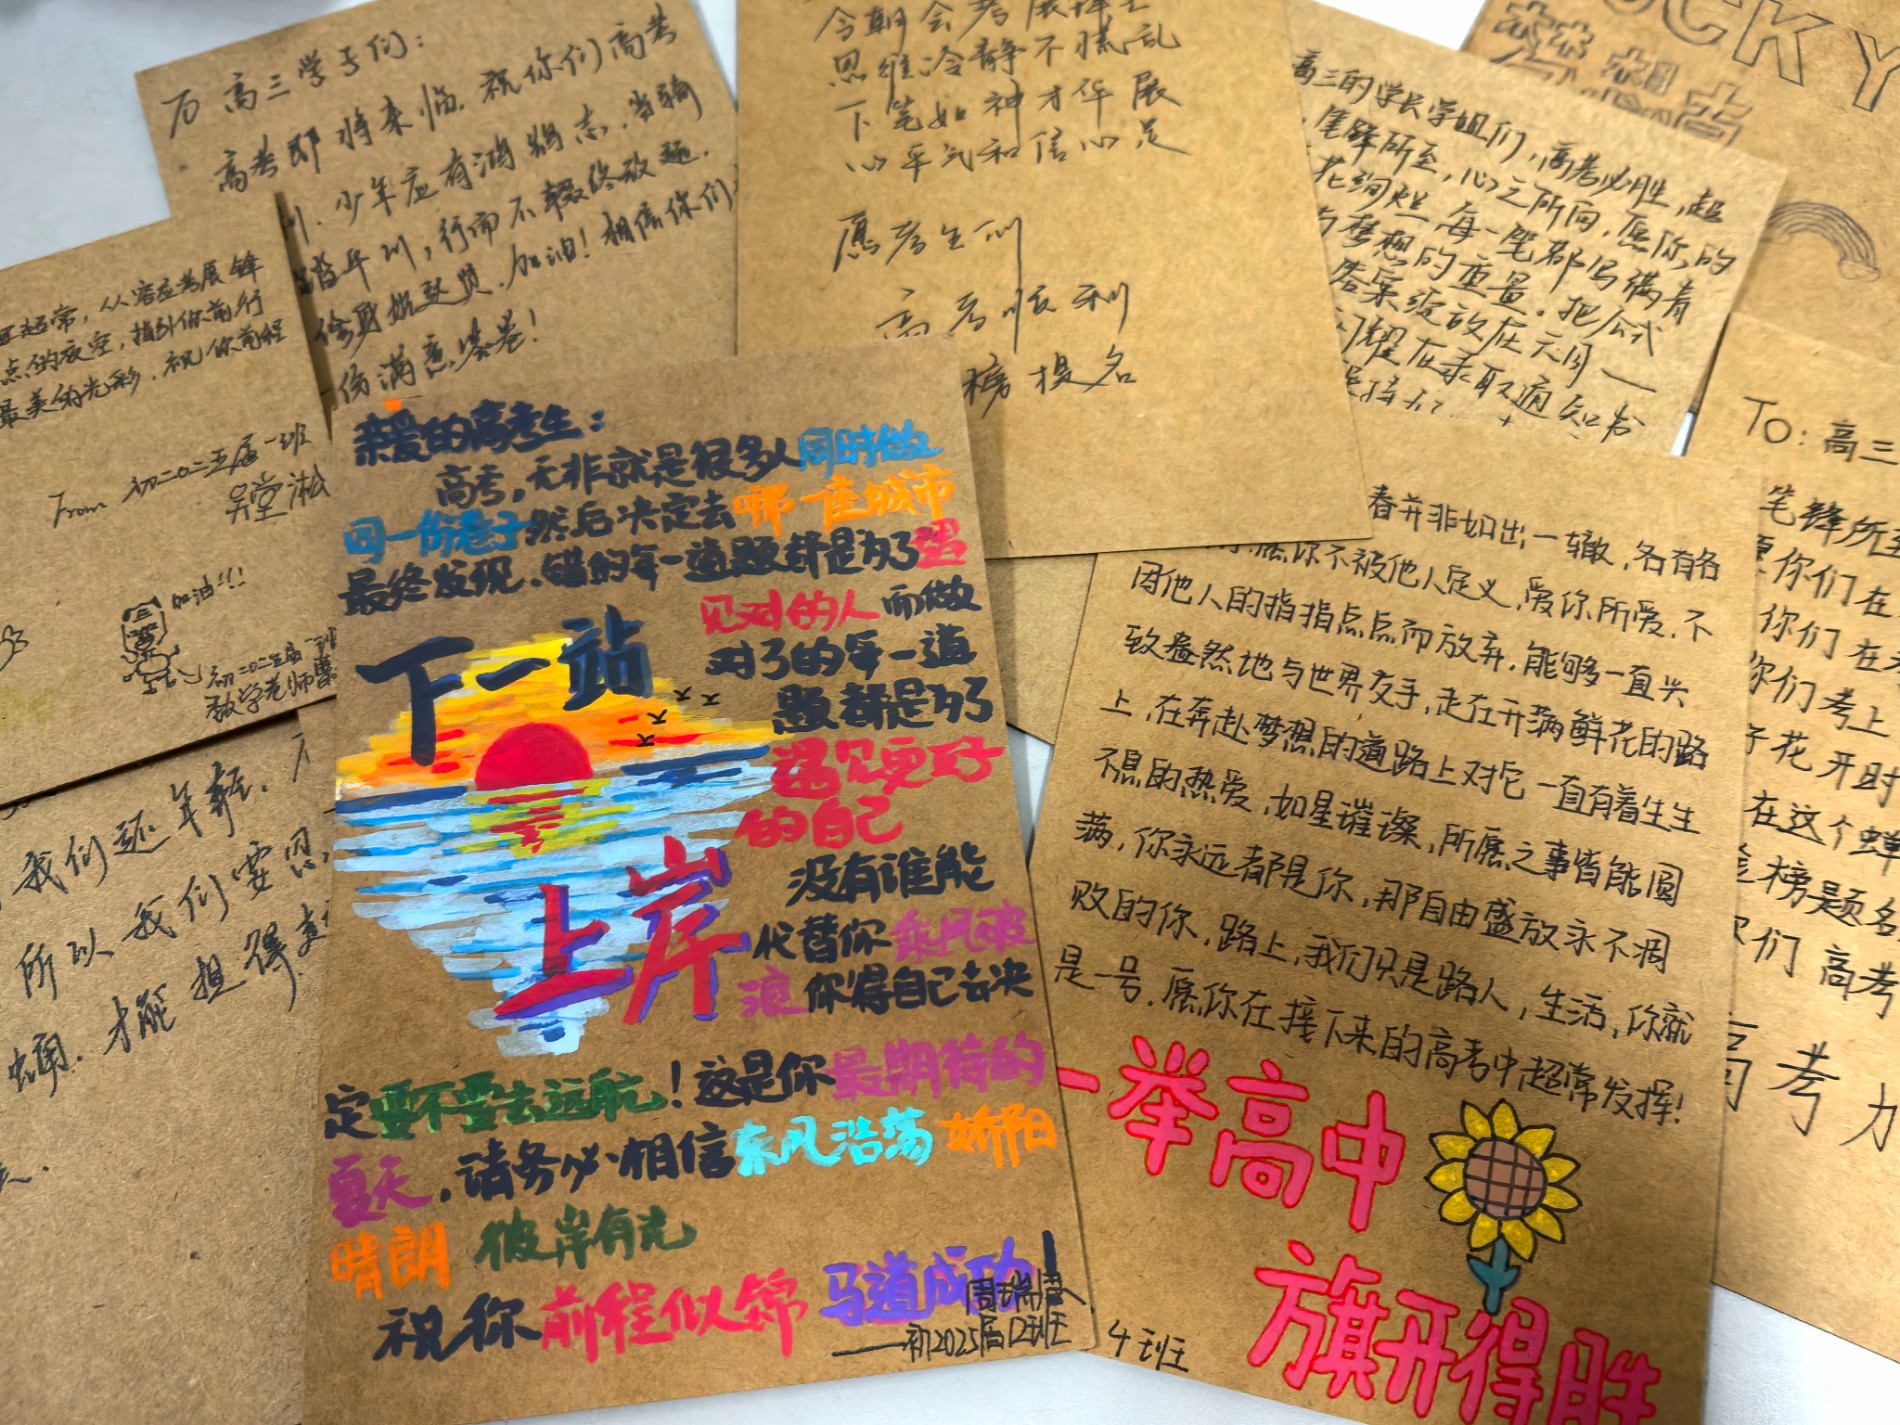 万高三学子们：
高考即将来临.祝你们高考
利.少年应有鸿鹄志.当骑
踏平川，行而不辍终致远.
加油！相信你们
份满意答卷！
今朝会考展锋芒
思维冷静不慌乱
下笔如神才华展
心平气和信心足
愿考生们
高考顺利
榜提名
高三的学长学姐们，高考必胜，超
笔锋所至，心之所向，愿你的
花绚烂，每一笔都写满青
与梦想的重量。把公式
答案绽放在天河——
闪耀在录取通知书
LUCKY
超常，从容应考展锋
点的夜空，指引你前行
最美的光彩.祝你前程
From 初二〇二五届一班
加油！！！
初二〇二五届一班
数学老师
我们还年轻.
所以我们要
蛹.才能担得
亲爱的高考生：
高考，无非就是很多人同时做
同一份卷子然后决定去哪一座城市
最终发现、错的每一道题都是为了遇
见对的人而做
对了的每一道
题都是为了
遇见更好
的自己
下一站
上岸
没有谁能
代替你乘风破
浪你得自己去决
定要不要去远航！这是你最期待的
夏天，请务必相信东风浩荡 娇阳
晴朗 彼岸有光
祝你前程似锦 马道成功！
周瑞
——初2025届12班
春并非如出一辙，各有各
愿你不被他人定义，爱你所爱，不
因他人的指指点点而放弃，能够一直兴
致盎然地与世界交手，走在开满鲜花的路
上，在奔赴梦想的道路上对它一直有着生生
不息的热爱，如星璀璨，所愿之事皆能圆
满，你永远都是你，那自由盛放永不凋
败的你，路上，我们只是路人，生活，你就
是一号.愿你在接下来的高考中超常发挥！
一举高中
旗开得胜
4班
To：高三
笔锋所至
愿你们在
你们在
你们考上
子花开时
在这个蝉
金榜题名
你们高考
高考加